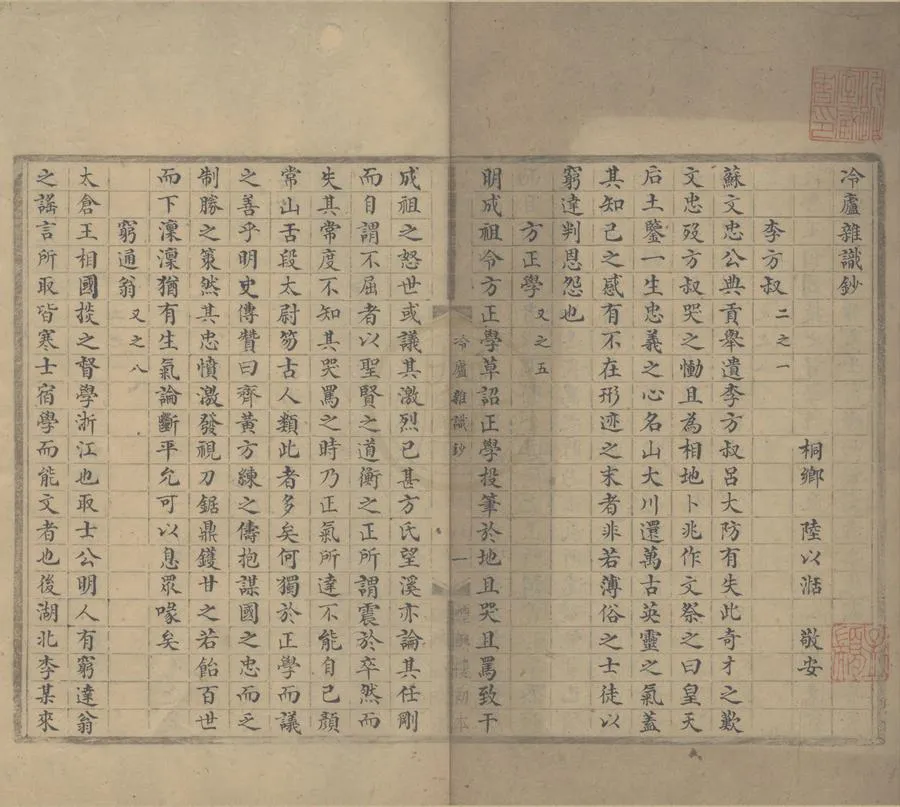 冷廬雜識鈔
桐鄉 陸以湉 敬安
李方叔 二之一
蘇文忠公典貢舉遺李方叔呂大防有失此奇才之歎
文忠歿方叔哭之慟且為相地卜兆作文祭之曰皇天
后土鑒一生忠義之心名山大川還萬古英靈之氣蓋
其知己之感有不在形迹之末者非若薄俗之士徒以
窮達判恩怨也
方正學 又之五
明成祖令方正學草詔正學投筆於地且哭且罵致干
冷廬雜識鈔 一
成祖之怒世或議其激烈已甚方氏望溪亦論其任剛
而自謂不屈者以聖賢之道衡之正所謂震於卒然而
失其常度不知其哭罵之時乃正氣所達不能自已顏
常山舌段太尉笏古人類此者多矣何獨於正學而議
之善乎明史傳贊曰齊黃方練之儔抱謀國之忠而乏
制勝之策然其忠憤激發視刀鋸鼎鑊甘之若飴百世
而下凜凜猶有生氣論斷平允可以息眾喙矣
窮通翁 又之八
太倉王相國掞之督學浙江也取士公明人有窮達翁
之謠言所取皆寒士宿學而能文者也後湖北李某來